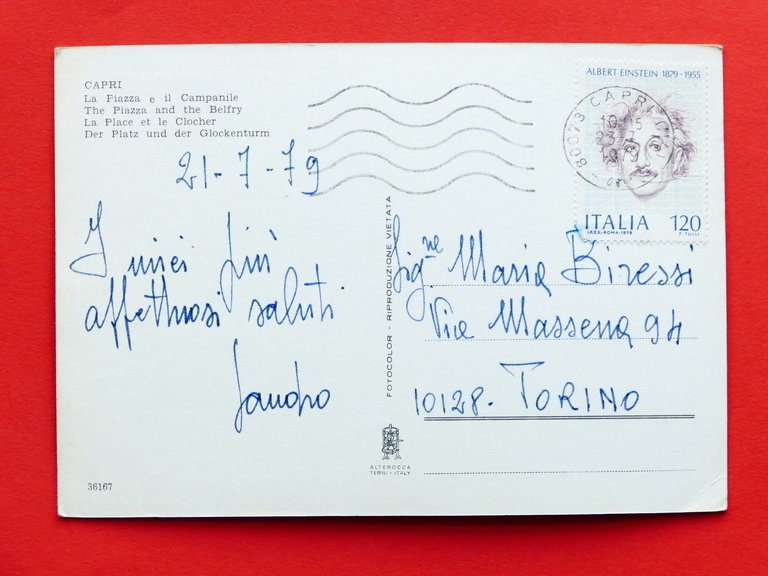 CAPRI
La Piazza e il Campanile
The Piazza and the Belfry
La Place et le Clocher
Der Platz und der Glockenturm
21-7-79
I miei più
affettuosi saluti
Sandro
36167
FOTOCOLOR - RIPRODUZIONE VIETATA
ALTEROCCA
TERNI - ITALY
ALBERT EINSTEIN 1879-1955
80073 CAPRI
ITALIA 120
I.P.Z.S.-ROMA-1979 F. TULLI
Sig.ne Maria Biressi
Via Massena 94
10128. TORINO